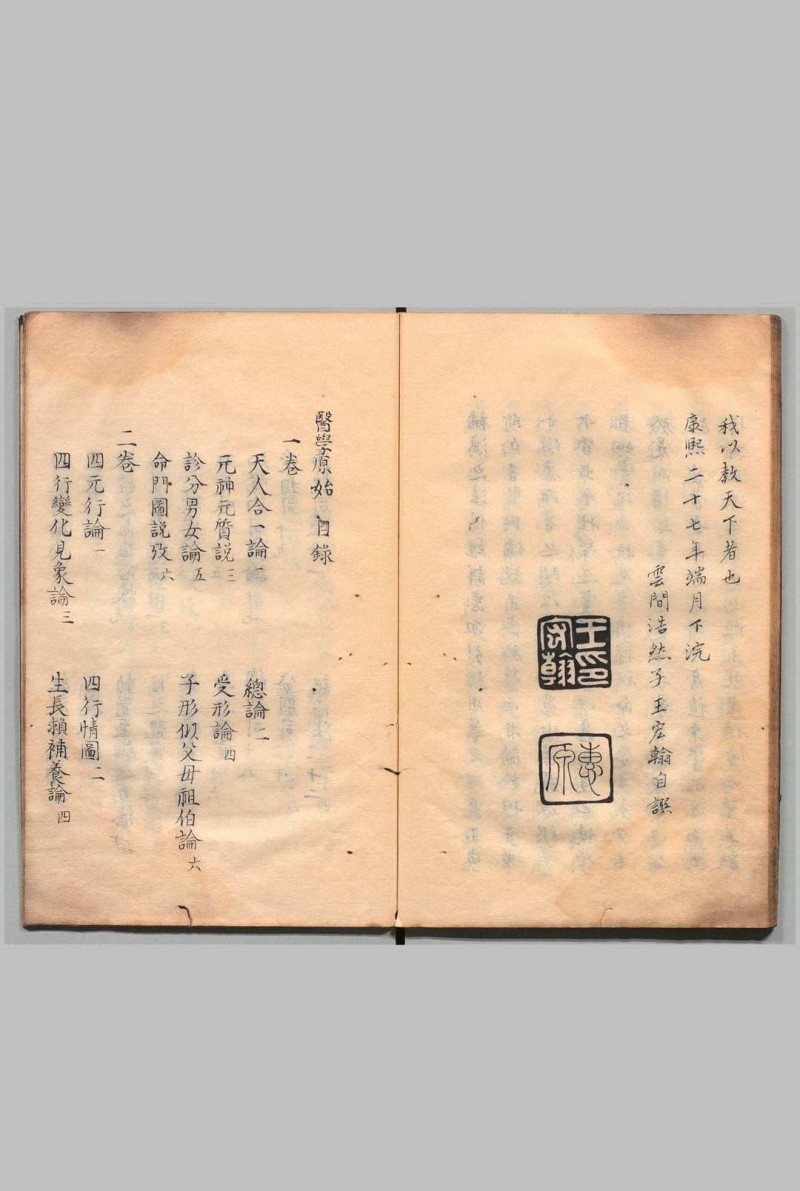 我以教天下者也
康熙二十七年端月下浣
雲間浩然子王宏翰自譔
王印宏翰
惠原
醫學原始目錄
一卷
天人合一論一
總論二
元神元質説三
受形論四
診分男女論五
子形似父母祖伯論六
命門圖説攷六
二卷
四元行論一
四行情圖二
四行變化見象論三
生長賴補養論四